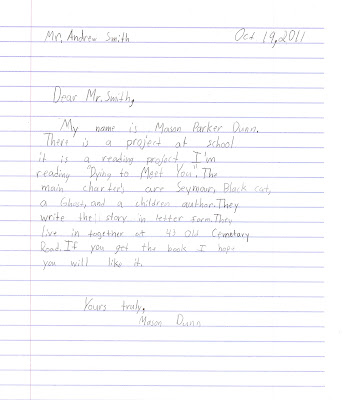 Mr. Andrew Smith
Oct 19, 2011
Dear Mr. Smith,
My name is Mason Parker Dunn.
There is a project at school
it is a reading project. I'm
reading "Dying to Meet You". The
main charters are Seymour, Black cat,
a Ghost, and a children author. They
write the story in letter form. They
live in together at 43 Old Cemetary
Road. If you get the book I hope
you will like it.
Yours truly,
Mason Dunn